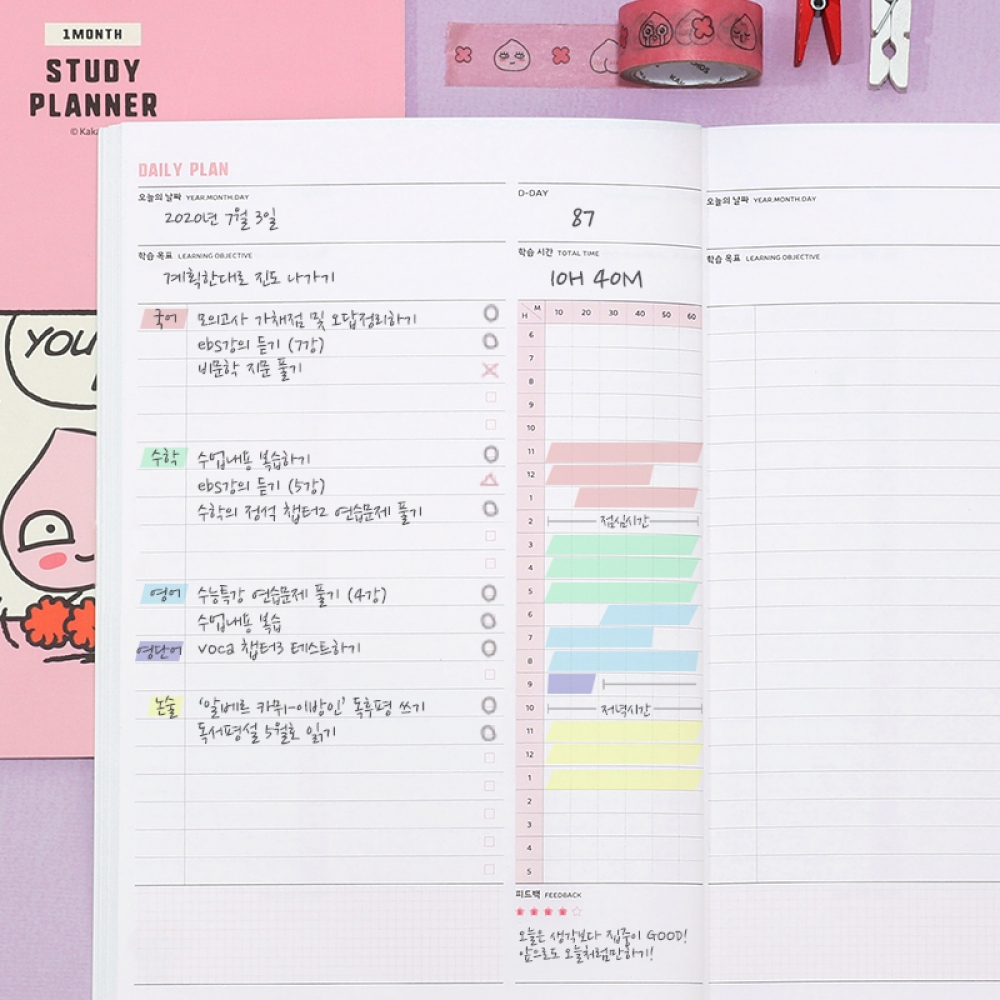 1MONTH
STUDY
PLANNER
© Kaka
YOU
DAILY PLAN
오늘의 날짜 YEAR.MONTH.DAY
2020년 7월 3일
D-DAY
87
학습 목표 LEARNING OBJECTIVE
계획한대로 진도 나가기
학습 시간 TOTAL TIME
10H 40M
국어 모의고사 가채점 및 오답정리하기
ebs강의 듣기 (7강)
비문학 지문 풀기
수학 수업내용 복습하기
ebs강의 듣기 (5강)
수학의 정석 챕터2 연습문제 풀기
영어 수능특강 연습문제 풀기 (4강)
수업내용 복습
영단어 voca 챕터3 테스트하기
논술 '알베르 카뮈-이방인' 독후평 쓰기
독서평설 5월호 읽기
H M 10 20 30 40 50 60
6
7
8
9
10
11
12
1
2 점심시간
3
4
5
6
7
8
9
10 저녁시간
11
12
1
2
3
4
5
피드백 FEEDBACK
오늘은 생각보다 집중이 GOOD!
앞으로도 오늘처럼만하기!
오늘의 날짜 YEAR.MONTH.DAY
학습 목표 LEARNING OBJECTIVE